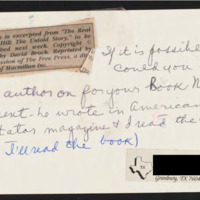 is excerpted from "The Real
Hill: The Untold Story," to be
hed next week. Copyright ©
by David Brock. Reprinted by
ission of The Free Press, a di-
of Macmillan Inc.
If it is possible
could you
author on for your Book N
ent - he wrote in American
tator magazine & I read the
I'll read the book)
Granbury, TX 7604